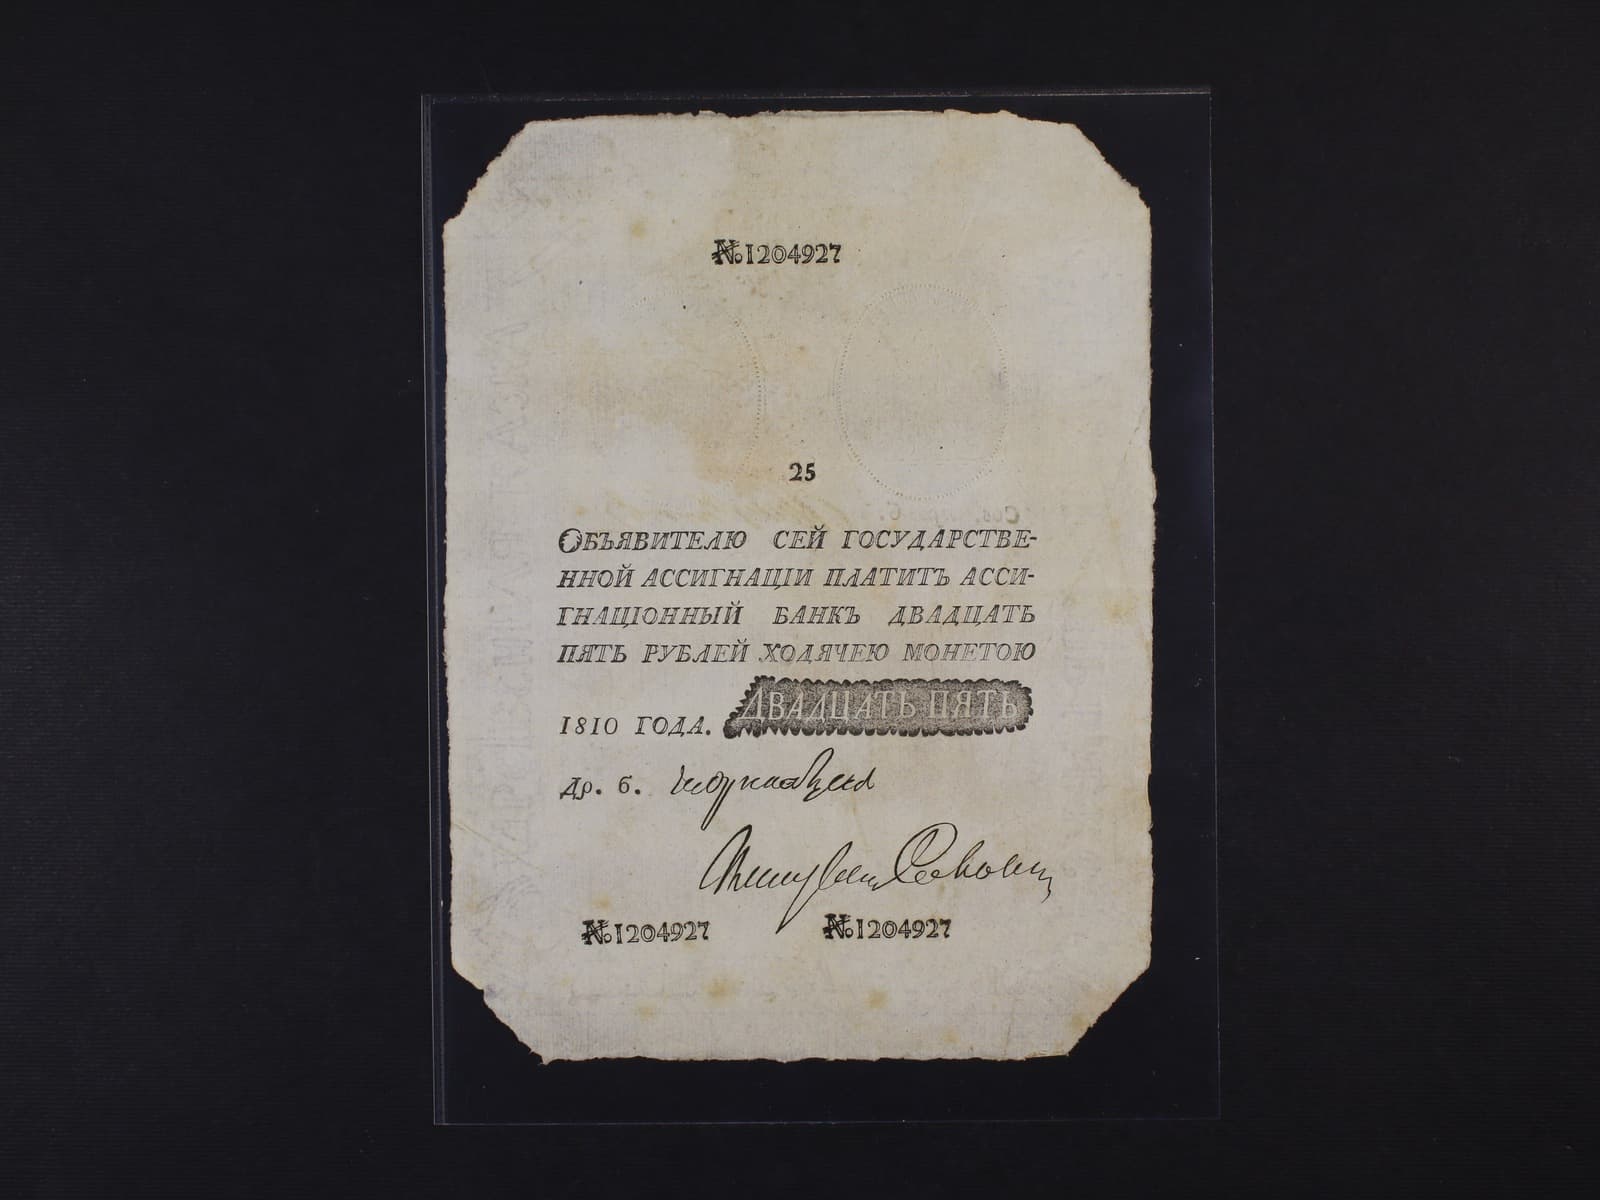 №1204927
25
ОБЪЯВИТЕЛЮ СЕЙ ГОСУДАРСТВЕ-
ННОЙ АССИГНАЦІИ ПЛАТИТЪ АССИ-
ГНАЦІОННЫЙ БАНКЪ ДВАДЦАТЬ
ПЯТЬ РУБЛЕЙ ХОДЯЧЕЮ МОНЕТОЮ
1810 ГОДА. ДВАДЦАТЬ ПЯТЬ
Др. б.
№1204927 №1204927